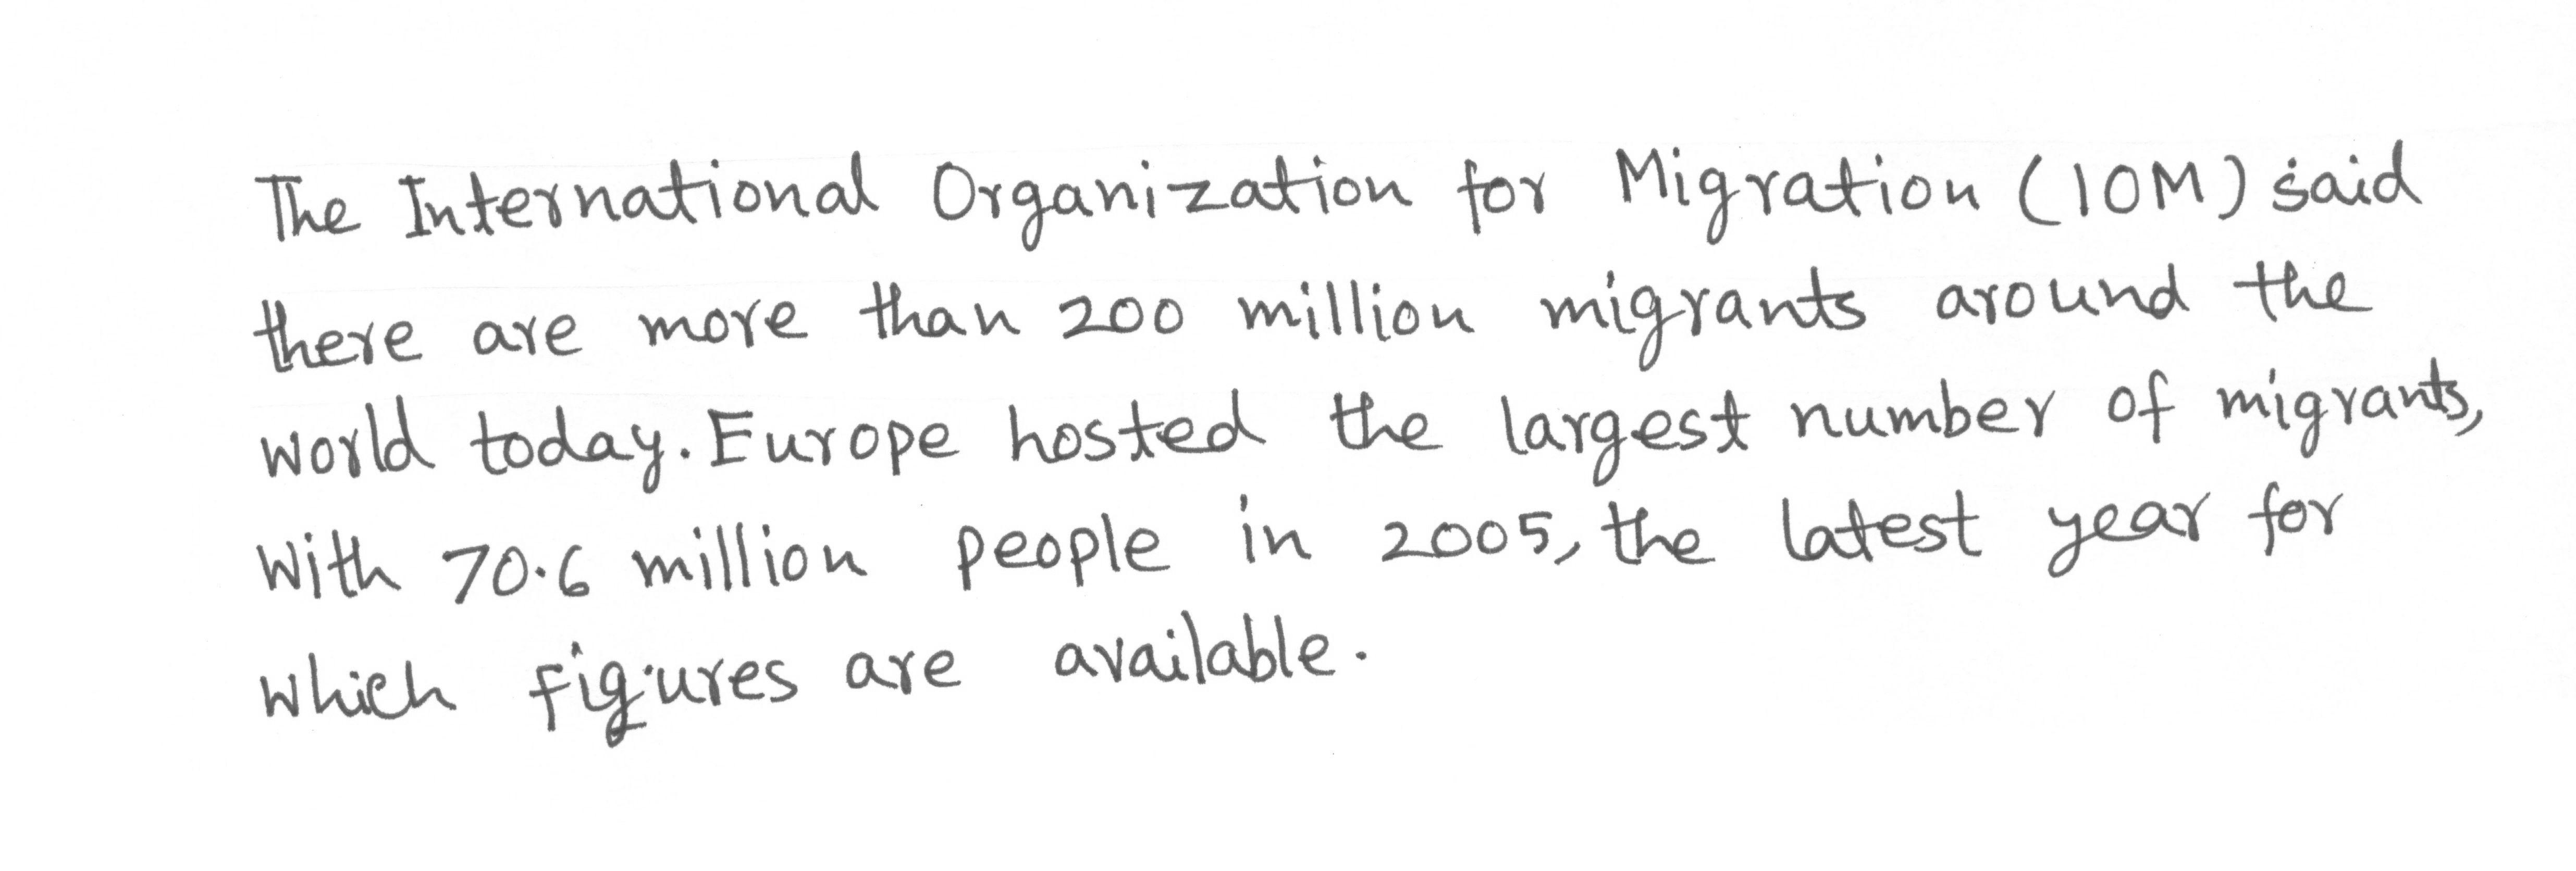 The International Organization for Migration (IOM) said
there are more than 200 million migrants around the
world today. Europe hosted the largest number of migrants,
with 70.6 million people in 2005, the latest year for
which figures are available.